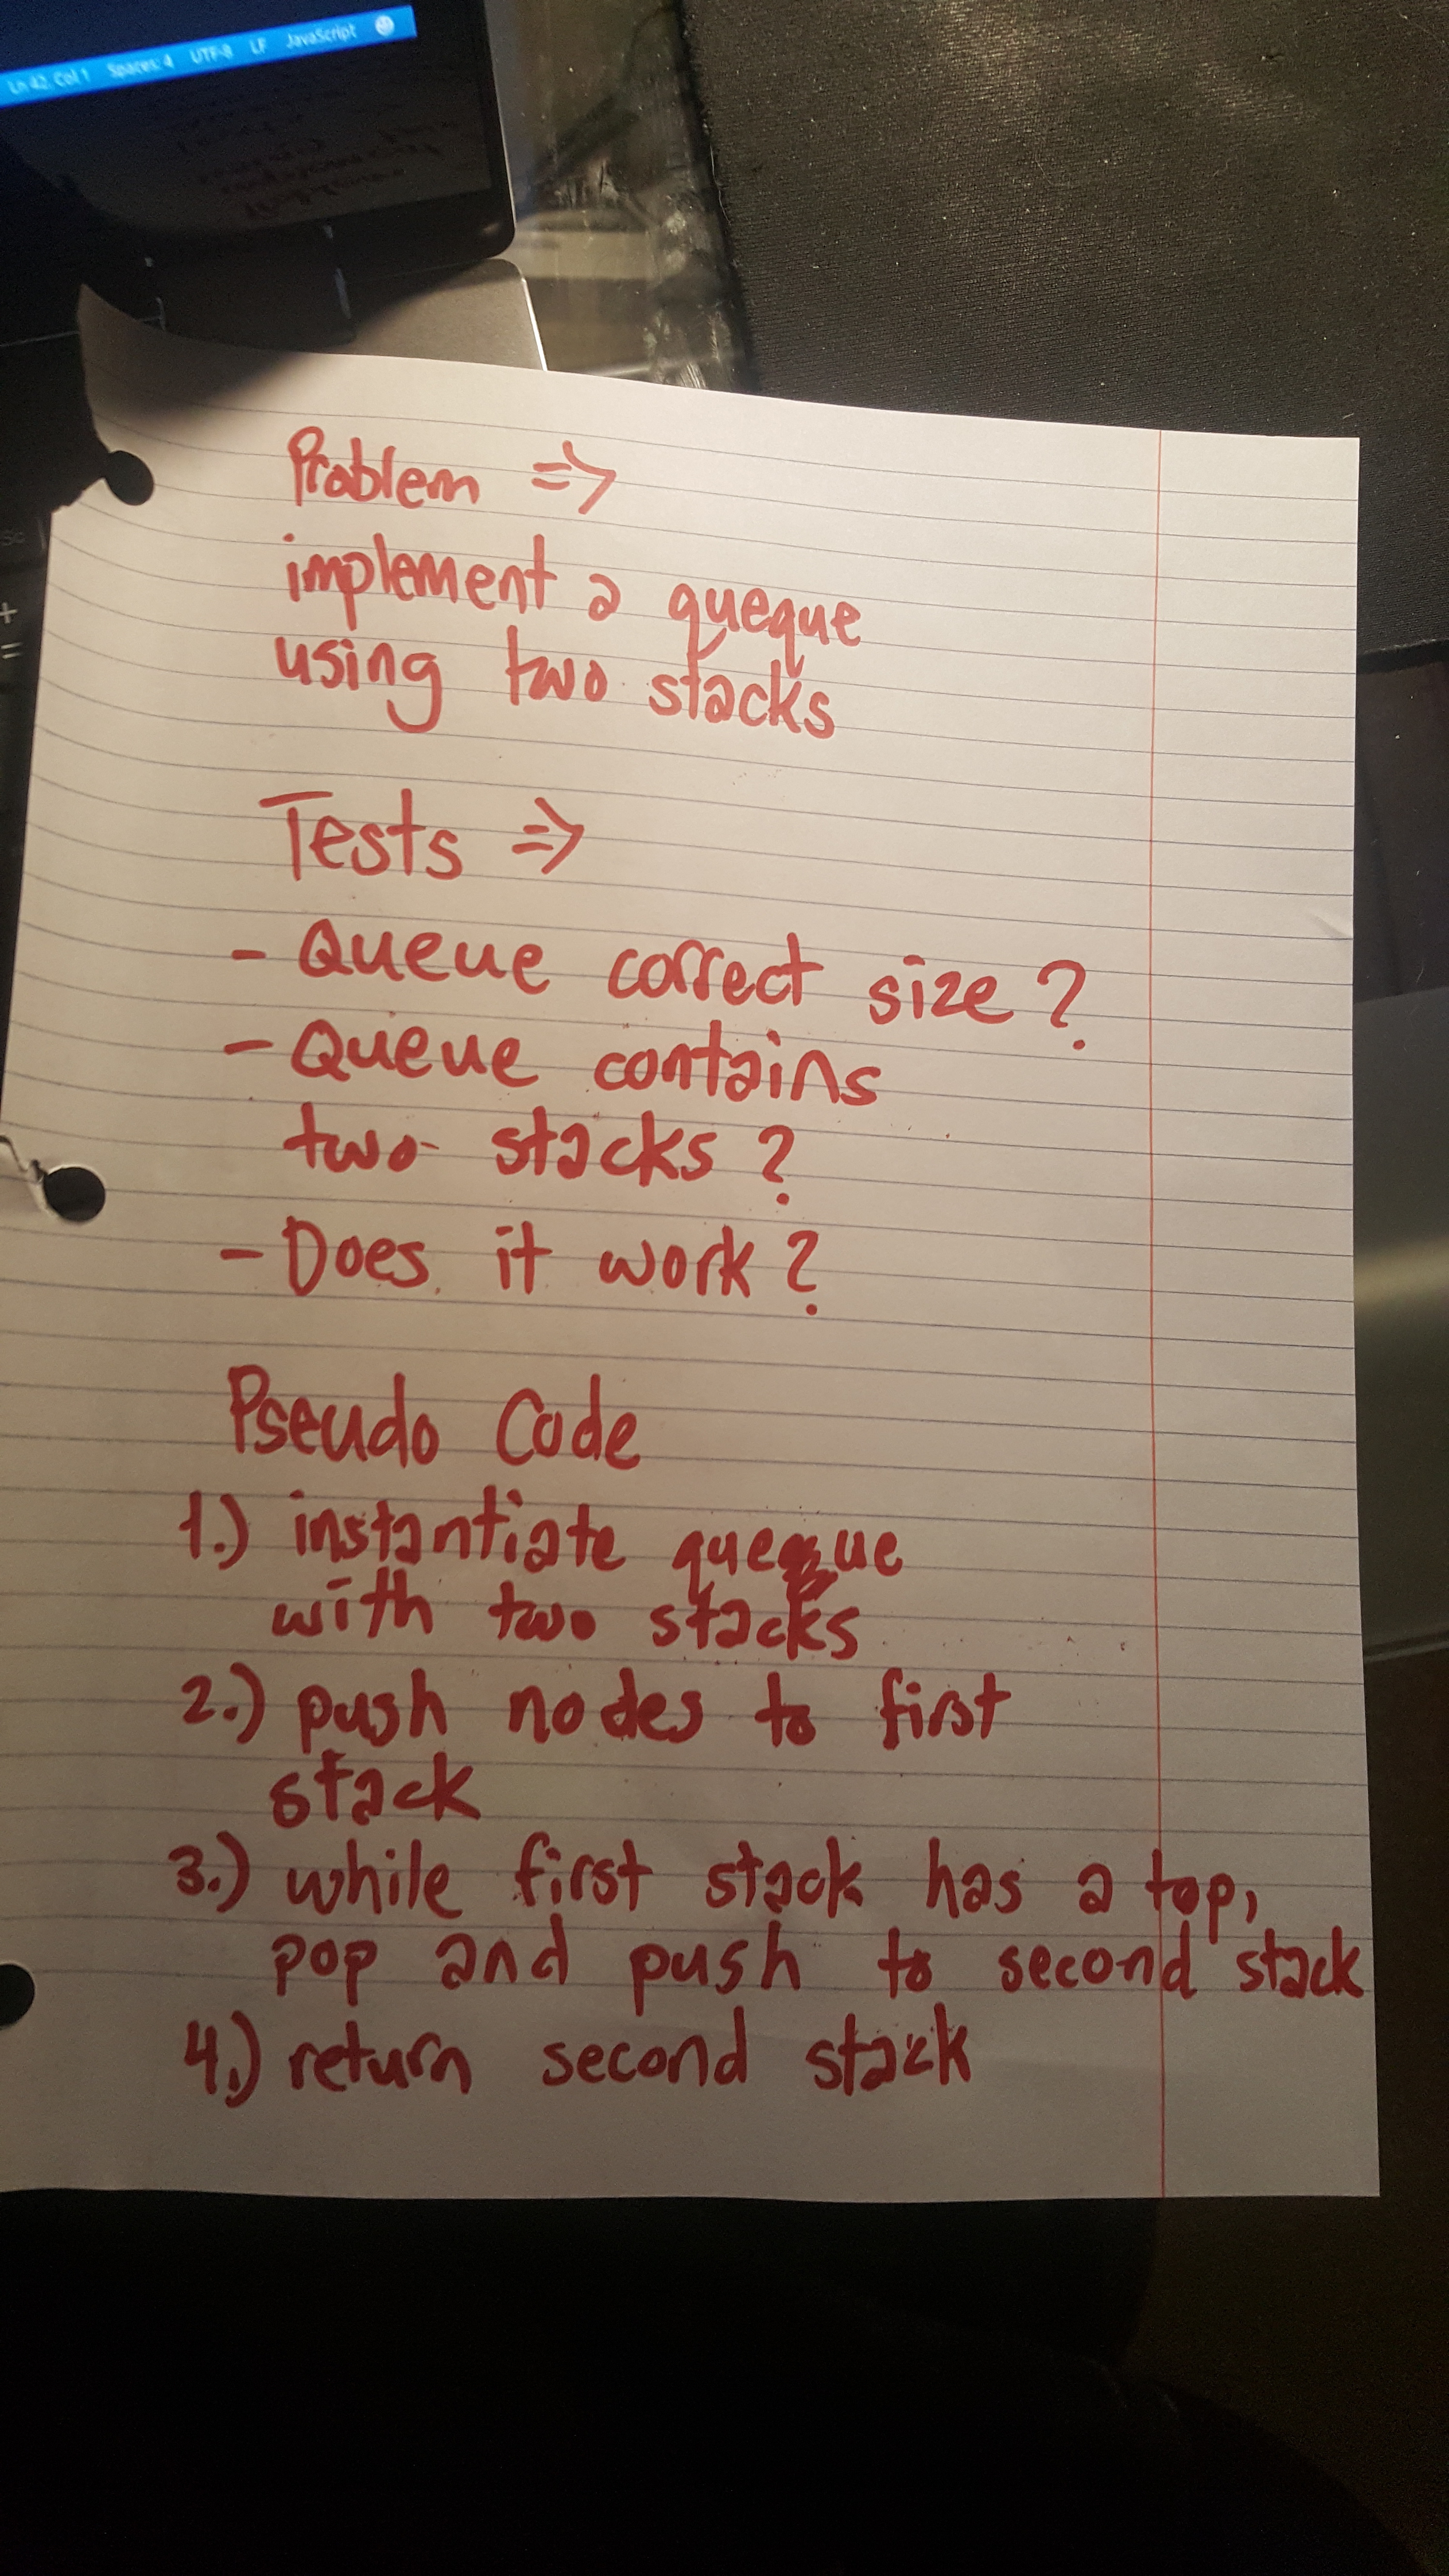 Ln 42, Col 1 Spaces: 4 UTF-8 LF JavaScript
Problem =>
implement a queque
using two stacks
Tests =>
- Queue correct size?
- Queue contains
two stacks?
- Does it work?
Pseudo Code
1.) instantiate queque
with two stacks
2.) push nodes to first
stack
3.) while first stack has a top,
pop and push to second stack
4.) return second stack
+
=